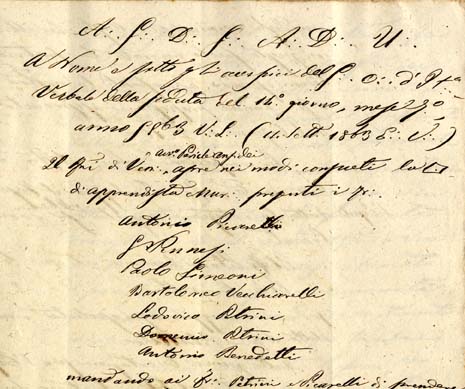 A∴ G∴ D∴ G∴ A∴ D∴ U∴
A Nome e sotto gli auspici del G∴ O∴ d'
Verbale della seduta del 14° giorno, mese 7°
anno 5863 V∴ L∴ (14 Sett. 1863 E∴ V∴)
Il di Ven∴ apre nei modi consueti la
di apprendista Mur∴ presenti i
Antonio
G
Paolo Simeoni
Bartolomeo Vecchiarelli
Lodovico Petrini
Domenico Petrini
Antonio Benedetti
mandando ai Petrini e di prendere